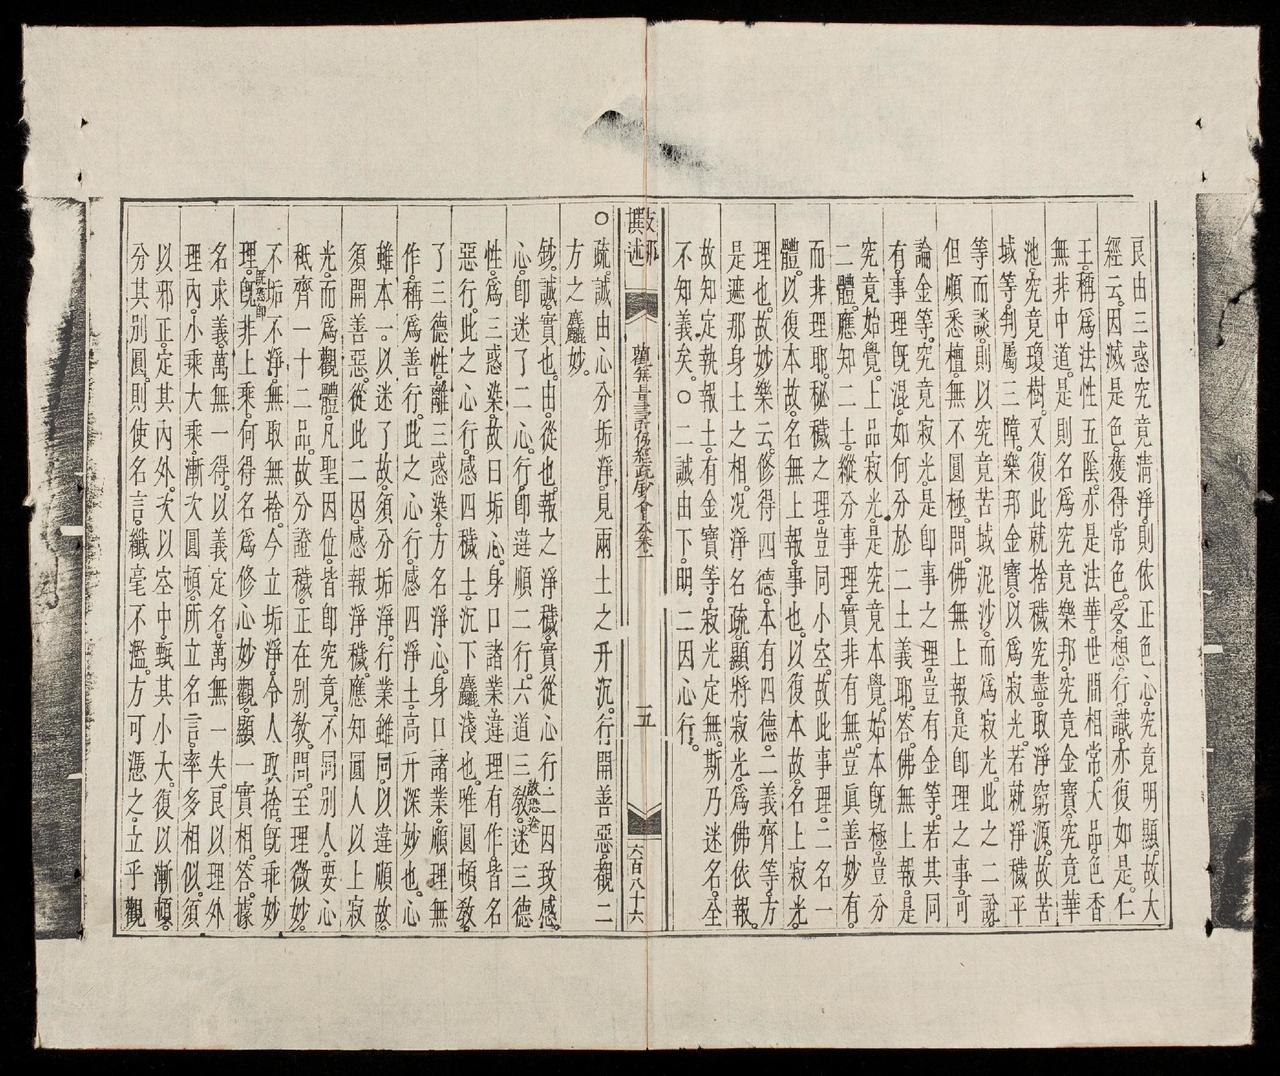 良由三惑究竟淸淨。則依正色心。究竟明顯。故大
經云。因滅是色。獲得常色。受。想。行。識。亦復如是。仁
王。稱爲法性五陰。亦是法華。世間相常。大品。色香
無非中道。是則名爲究竟樂邦。究竟金寶。究竟華
池。究竟瓊樹。又復此就捨穢究盡。取淨窮源。故苦
域等。判屬三障。樂邦金寶。以爲寂光。若就淨穢平
等而談。則以究竟苦域泥沙。而爲寂光。此之二說。
但順悉檀。無不圓極。問。佛無上報。是卽理之事。可
論金等。究竟寂光。是卽事之理。豈有金等。若其同
有。事理旣混。如何分於二土義耶。答。佛無上報。是
究竟始覺。上品寂光。是究竟本覺。始本旣極。豈分
二體。應知二土。縱分事理。實非有無。豈眞善妙有。
而非理耶。秘穢之理。豈同小空。故此事理。二名一
體。以復本故。名無上報。事也。以復本故。名上寂光。
理也。故妙樂云。修得四德。本有四德。二義齊等。方
是遮那身土之相。況淨名疏。顯將寂光。爲佛依報。
故知定執報土。有金寶等。寂光定無。斯乃迷名。全
不知義矣。○二誠由下。明二因心行。
支那
撰述
觀無量壽佛經疏鈔會本卷一
五
六百八十六
○疏。誠由心分垢淨。見兩土之升沉。行開善惡。觀二
方之麤妙。
鈔。誠。實也。由。從也。報之淨穢。實從心行二因致感。
心。卽迷了二心。行。卽違順二行。六道三敎。故恐迷迷三德
性。爲三惑染。故曰垢心。身口諸業。違理有作。皆名
惡行。此之心行。感四穢土。沉下麤淺也。唯圓頓敎。
了三德性。離三惑染。方名淨心。身口諸業。順理無
作。稱爲善行。此之心行。感四淨土。高升深妙也。心
雖本一。以迷了故。須分垢淨。行業雖同。以違順故。
須開善惡。從此二因。感報淨穢。應知圓人以上寂
光。而爲觀體。凡聖因位。皆卽究竟。不同別人。要心
秖齊一十二品。故分證穢。正在別敎。問。至理微妙。
不垢不淨。無取無捨。今立垢淨。令人取捨。旣乖妙
理。旣旣恐卽非上乘。何得名爲修心妙觀。顯一實相。答。據
名求義。萬無一得。以義定名。萬無一失。良以理外
理內。小乘大乘。漸次圓頓。所立名言。率多相似。須
以邪正。定其內外。次以空中。甄其小大。復以漸頓。
分其別圓。則使名言。纖毫不濫。方可憑之。立乎觀